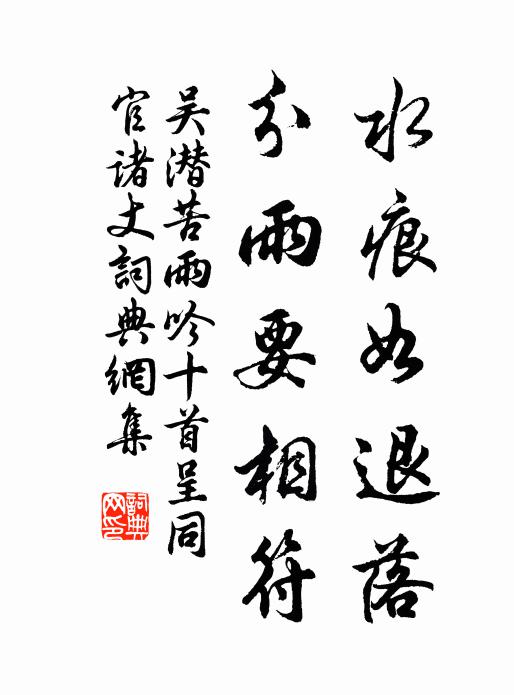 水痕如退落
分雨要相符
吴潜苦雨吟十首呈同
官诸丈詞典網集
詞典
网印